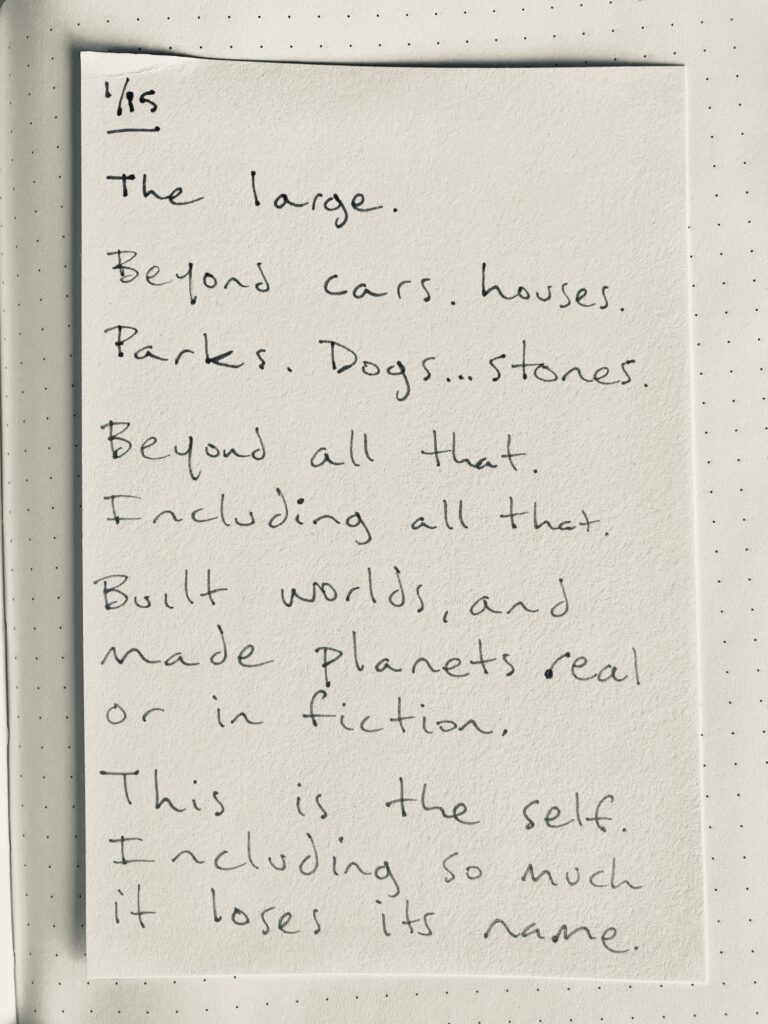 1/15
The large.
Beyond cars. houses.
Parks. Dogs... stones.
Beyond all that.
Including all that.
Built worlds, and
made planets real
or in fiction.
This is the self.
Including so much
it loses its name.